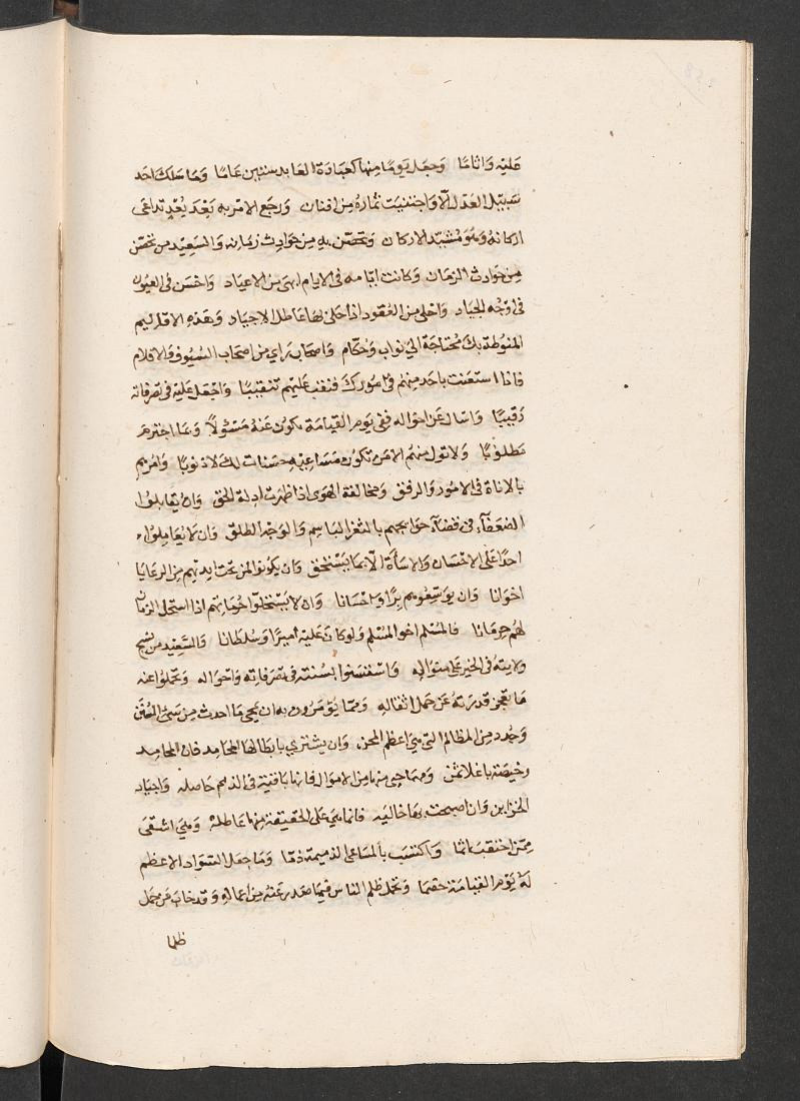 عليه واثاما وجعل يوما منها كعبادة العابد ستين عاما وما سلك احد
سبيل العدل الا واجتنيت ثماره من افنان ورجع الامر به بعد بعد تداعى
اركانه وهو مشيد الاركان وتحصن به من حوادث زمانه والسعيد من تحصن
من حوادث الزمان وكانت ايامه فى الايام ابهى من الاعياد واحسن فى العيون
فى وجه الجياد واحلى من العقود اذا حلى بها عاطل الاجياد وهذه الاقاليم
المنوطة بك محتاجة الى نواب وحكام واصحاب راي من اصحاب السيوف والاقلام
فاذا استعنت باحد منهم فى امورك فنقب عليهم تنقيبا واجعل عليه فى تصرفاته
رقيبا واسال عن احواله ففى يوم القيامة تكون عنه مسئولا وعا اجترم
مطلوبا ولا تول منهم الا من تكون مساعيه حسنات لك لا ذنوبا وامرهم
بالاناة فى الامور والرفق ومخالفة الهوى اذا ظهرت ادلة الحق وان يقابلوا
الضعفآء فى قضآء حوايجهم بالثغر الباسم والوجه الطلق وان لا يعاملوا
احدا على الاحسان والاسأة الا بما يستحق وان يكونوا لمن تحت ايديهم من الرعايا
اخوانا وان يوسعوهم برا واحسانا وان لا يستحلوا حرماتهم اذا استحل الزمان
لهم حرمانا فالمسلم اخو المسلم ولو كان عليه اميرا وسلطانا والسعيد من نسج
ولايته فى الخير على منواله واستسنوا بسنته فى تصرفاته واحواله وتحملوا عنه
ما تعجز قدرته عن حمل اثقاله ومما يؤمرون به ان يمحى ما احدث من سئ السنن
وجدد من المظالم التى هى اعظم المحن وان يشتري بابطالها المحامد فان المحامد
رخيصة باغلا ثمن ومهما جبى منها من الاموال فانها باقية فى الذمم حاصله واجياد
الخزاين وان اصبحت بها حاليه فانما هى على الحقيقة منها عاطلة وهل اشقى
ممن احتقب اثما واكتسب بالمساعى الذميمة ذما وجعل السواد الاعظم
له يوم القيامة خصما وتحمل ظلم الناس فيما صدر عنه من اعماله وقد خاب من حمل
ظلما